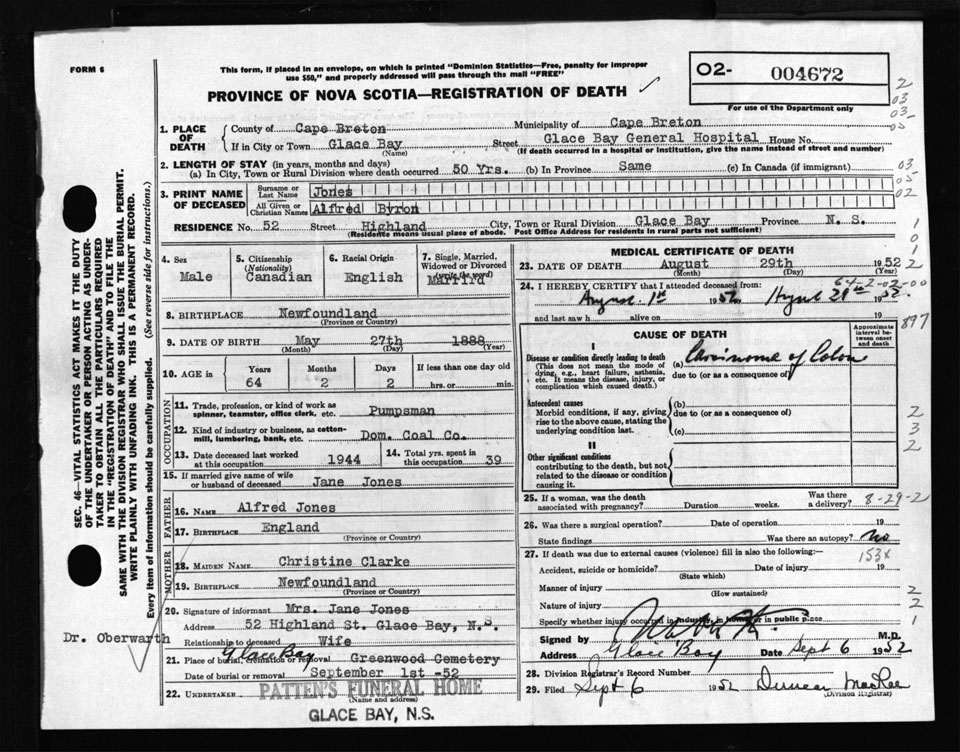 FORM 6
This form, if placed in an envelope, on which is printed "Dominion Statistics—Free, penalty for improper
use $50," and properly addressed will pass through the mail "FREE"
PROVINCE OF NOVA SCOTIA—REGISTRATION OF DEATH
O2- 004672
For use of the Department only
2
03
03
03
1. PLACE OF DEATH
County of Cape Breton Municipality of Cape Breton
If in City or Town Glace Bay Street Glace Bay General Hospital House No.
(Name) (If death occurred in a hospital or institution, give the name instead of street and number)
2. LENGTH OF STAY (in years, months and days)
(a) In City, Town or Rural Division where death occurred 50 Yrs. (b) In Province Same (c) In Canada (if immigrant)
03
05
02
3. PRINT NAME OF DECEASED
Surname or Last Name Jones
All Given or Christian Names Alfred Byron
RESIDENCE No. 52 Street Highland City, Town or Rural Division Glace Bay Province N. S.
(Residence means usual place of abode. Post Office Address for residents in rural parts not sufficient)
1
0
1
2
4. Sex
Male
5. Citizenship
(Nationality)
Canadian
6. Racial Origin
English
7. Single, Married,
Widowed or Divorced
(write the word)
Marrird
8. BIRTHPLACE Newfoundland
(Province or Country)
9. DATE OF BIRTH May 27th 1888
(Month) (Day) (Year)
10. AGE in
Years Months Days If less than one day old
64 2 2 hrs. or min.
OCCUPATION
11. Trade, profession, or kind of work as
spinner, teamster, office clerk, etc. Pumpsman
12. Kind of industry or business, as cotton-
mill, lumbering, bank, etc. Dom. Coal Co.
13. Date deceased last worked
at this occupation 1944
14. Total yrs. spent in
this occupation 39
15. If married give name of wife
or husband of deceased Jane Jones
FATHER
16. NAME Alfred Jones
17. BIRTHPLACE England
(Province or Country)
MOTHER
18. MAIDEN NAME Christine Clarke
19. BIRTHPLACE Newfoundland
(Province or Country)
20. Signature of informant Mrs. Jane Jones
Address 52 Highland St. Glace Bay, N.S.
Relationship to deceased Wife
Glace Bay
21. Place of burial, cremation or removal Greenwood Cemetery
Date of burial or removal September 1st -52
22. UNDERTAKER PATTEN'S FUNERAL HOME
(Name and address)
GLACE BAY, N.S.
MEDICAL CERTIFICATE OF DEATH
23. DATE OF DEATH August 29th 1952
(Month) (Day) (Year)
24. I HEREBY CERTIFY that I attended deceased from:
64-2-02-00
August 1st 1952 August 29th 1952
and last saw h alive on 19
897
CAUSE OF DEATH
Approximate
interval be-
tween onset
and death
I
Disease or condition directly leading to death
(This does not mean the mode of
dying, e.g., heart failure, asthenia,
etc. It means the disease, injury, or
complication which caused death.)
(a) Carcinoma of Colon
due to (or as a consequence of)
Antecedent causes
Morbid conditions, if any, giving
rise to the above cause, stating the
underlying condition last.
(b)
due to (or as a consequence of)
(c)
2
3
2
II
Other significant conditions
contributing to the death, but not
related to the disease or condition
causing it.
25. If a woman, was the death
associated with pregnancy? Duration weeks. Was there
a delivery?
8-29-2
26. Was there a surgical operation? Date of operation 19
State findings Was there an autopsy? No
27. If death was due to external causes (violence) fill in also the following:—
153x
Accident, suicide or homicide? Date of injury 19
(State which)
Manner of injury
(How sustained)
2
Nature of injury
2
Specify whether injury occurred in industry, in home or in public place
1
Signed by M.D.
Address Glace Bay Date Sept 6 1952
28. Division Registrar's Record Number
29. Filed Sept 6 1952 Duncan MacRae
(Division Registrar)
SEC. 46—VITAL STATISTICS ACT MAKES IT THE DUTY
OF THE UNDERTAKER OR PERSON ACTING AS UNDER-
TAKER TO OBTAIN ALL THE PARTICULARS REQUIRED
IN THE "REGISTRATION OF DEATH" AND TO FILE THE
SAME WITH THE DIVISION REGISTRAR WHO SHALL ISSUE THE BURIAL PERMIT.
WRITE PLAINLY WITH UNFADING INK. THIS IS A PERMANENT RECORD.
Every item of information should be carefully supplied. (See reverse side for instructions.)
Dr. Oberwarth